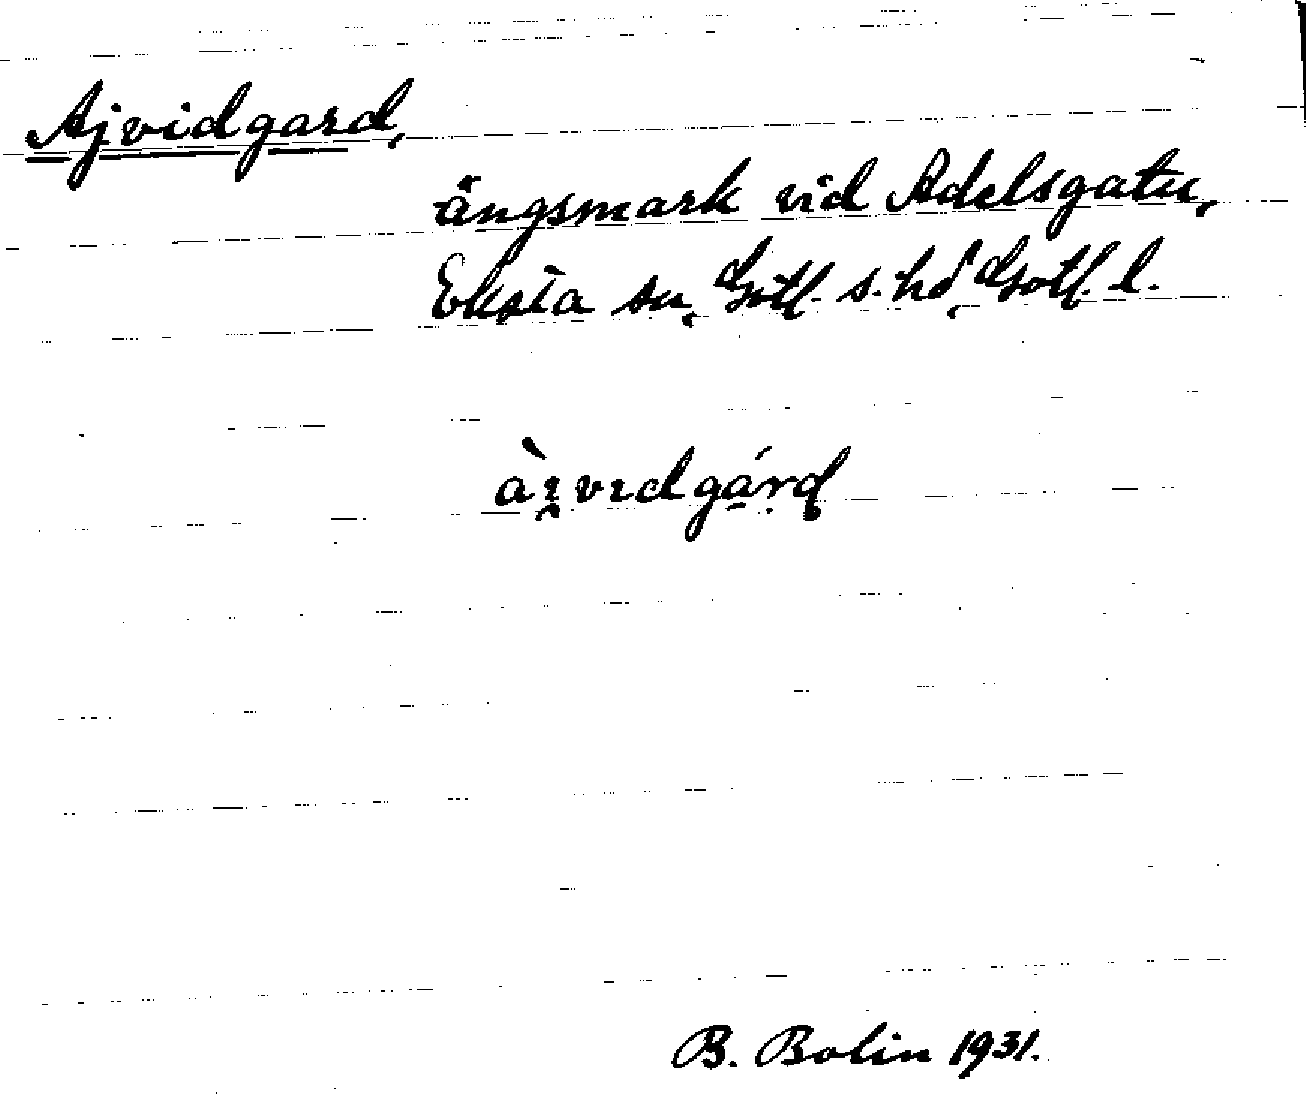 Ajvidgard,
ängsmark vid Adelsgatu,
Eksta sn, Gotl. s. hd, Gotl. l.
àɪ̯vɪdgárd
B. Bolin 1931.